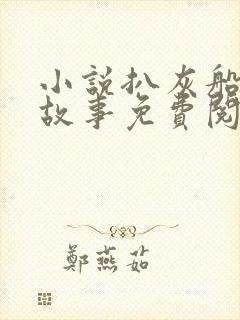 小說扒灰船
故事免費閱
鄭燕茹